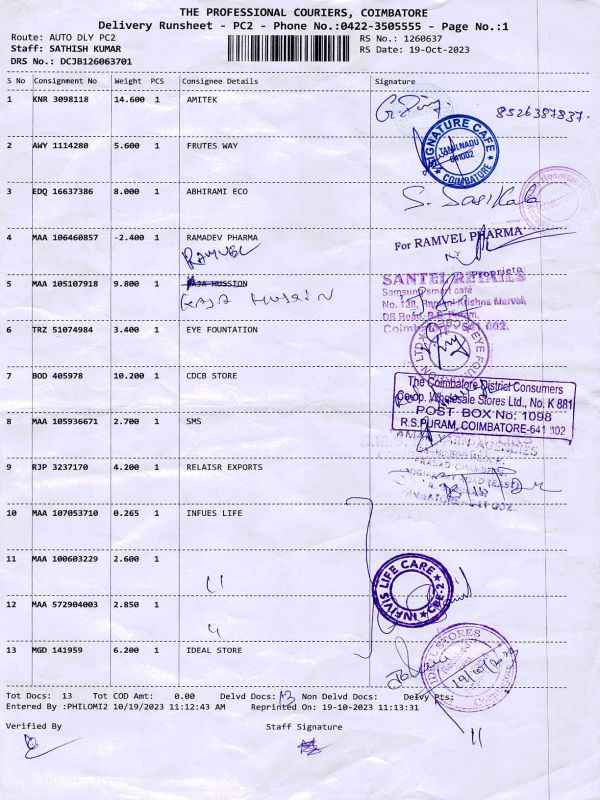 THE PROFESSIONAL COURIERS, COIMBATORE
Delivery Runsheet - PC2 - Phone No.:0422-3505555 - Page No.:1
Route: AUTO DLY PC2 RS No.: 1260637
Staff: SATHISH KUMAR RS Date: 19-Oct-2023
DRS No.: DCJB126063701
S No Consignment No Weight PCS Consignee Details Signature
1 KNR 3098118 14.600 1 AMITEK 8526387837.
2 AWY 1114280 5.600 1 FRUTES WAY
SIGNATURE CAFE
TAMILNADU
641002
COIMBATORE
3 EDQ 16637386 8.000 1 ABHIRAMI ECO S. Sasikala
4 MAA 106460857 -2.400 1 RAMADEV PHARMA For RAMVEL PHARMA
RAMVEL
Proprieto
5 MAA 105107918 9.800 1 RAJA HUSSION SANTEL RETAILS
Raja Husain Samsung smart café
DB Road, R.S. Puram,
Coimbatore - 641 002.
6 TRZ 51074984 3.400 1 EYE FOUNTATION
7 BOD 405978 10.200 1 CDCB STORE
The Coimbatore District Consumers
Co-op. Wholesale Stores Ltd., No. K 881
POST BOX No: 1098
R.S.PURAM, COIMBATORE-641 002
8 MAA 105936671 2.700 1 SMS
9 RJP 3237170 4.200 1 RELAISR EXPORTS
10 MAA 107053710 0.265 1 INFUES LIFE
11 MAA 100603229 2.600 1
"
INFIVIS LIFE CARE
CBE-2
12 MAA 572904003 2.850 1
"
13 MGD 141959 6.200 1 IDEAL STORE
STORES
19/10/23
Tot Docs: 13 Tot COD Amt: 0.00 Delvd Docs: 13 Non Delvd Docs: Delvy Pts:
Entered By :PHILOMI2 10/19/2023 11:12:43 AM Reprinted On: 19-10-2023 11:13:31
Verified By Staff Signature